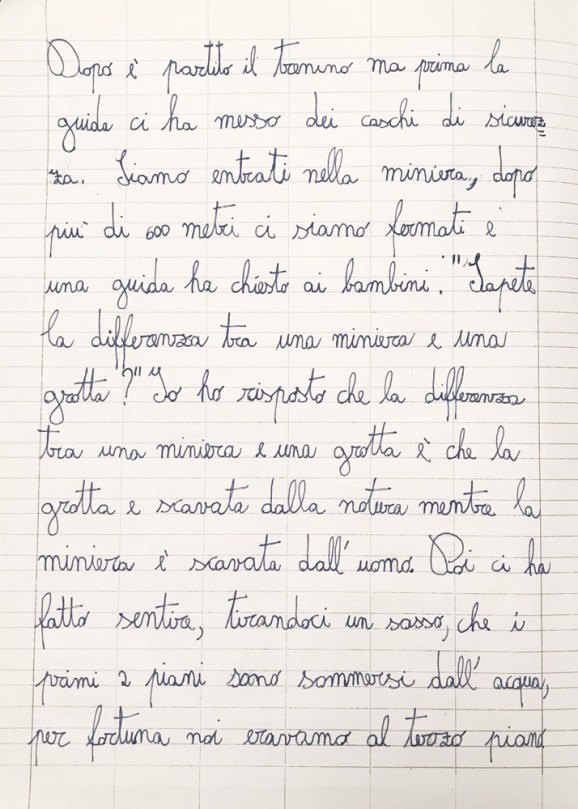 Dopo è partito il trenino ma prima la
guida ci ha messo dei caschi di sicurez=
za. Siamo entrati nella miniera, dopo
più di 600 metri ci siamo fermati e
una guida ha chiesto ai bambini: "Sapete
la differenza tra una miniera e una
grotta?" Io ho risposto che la differenza
tra una miniera e una grotta è che la
grotta e scavata dalla natura mentre la
miniera è scavata dall'uomo. Poi ci ha
fatto sentire, tirandoci un sasso, che i
primi 2 piani sono sommersi dall'acqua,
per fortuna noi eravamo al terzo piano